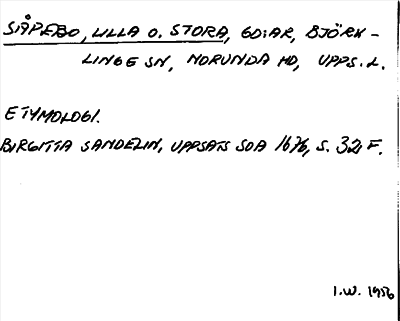 SÅPEBO, LILLA O. STORA, GDAR, BJÖRK-
LINGE SN, NORUNDA HD, UPPS. L.
ETYMOLOGI.
BIRGITTA SANDELIN, UPPSATS SOA 1676, S. 32 F.
I.W. 1956